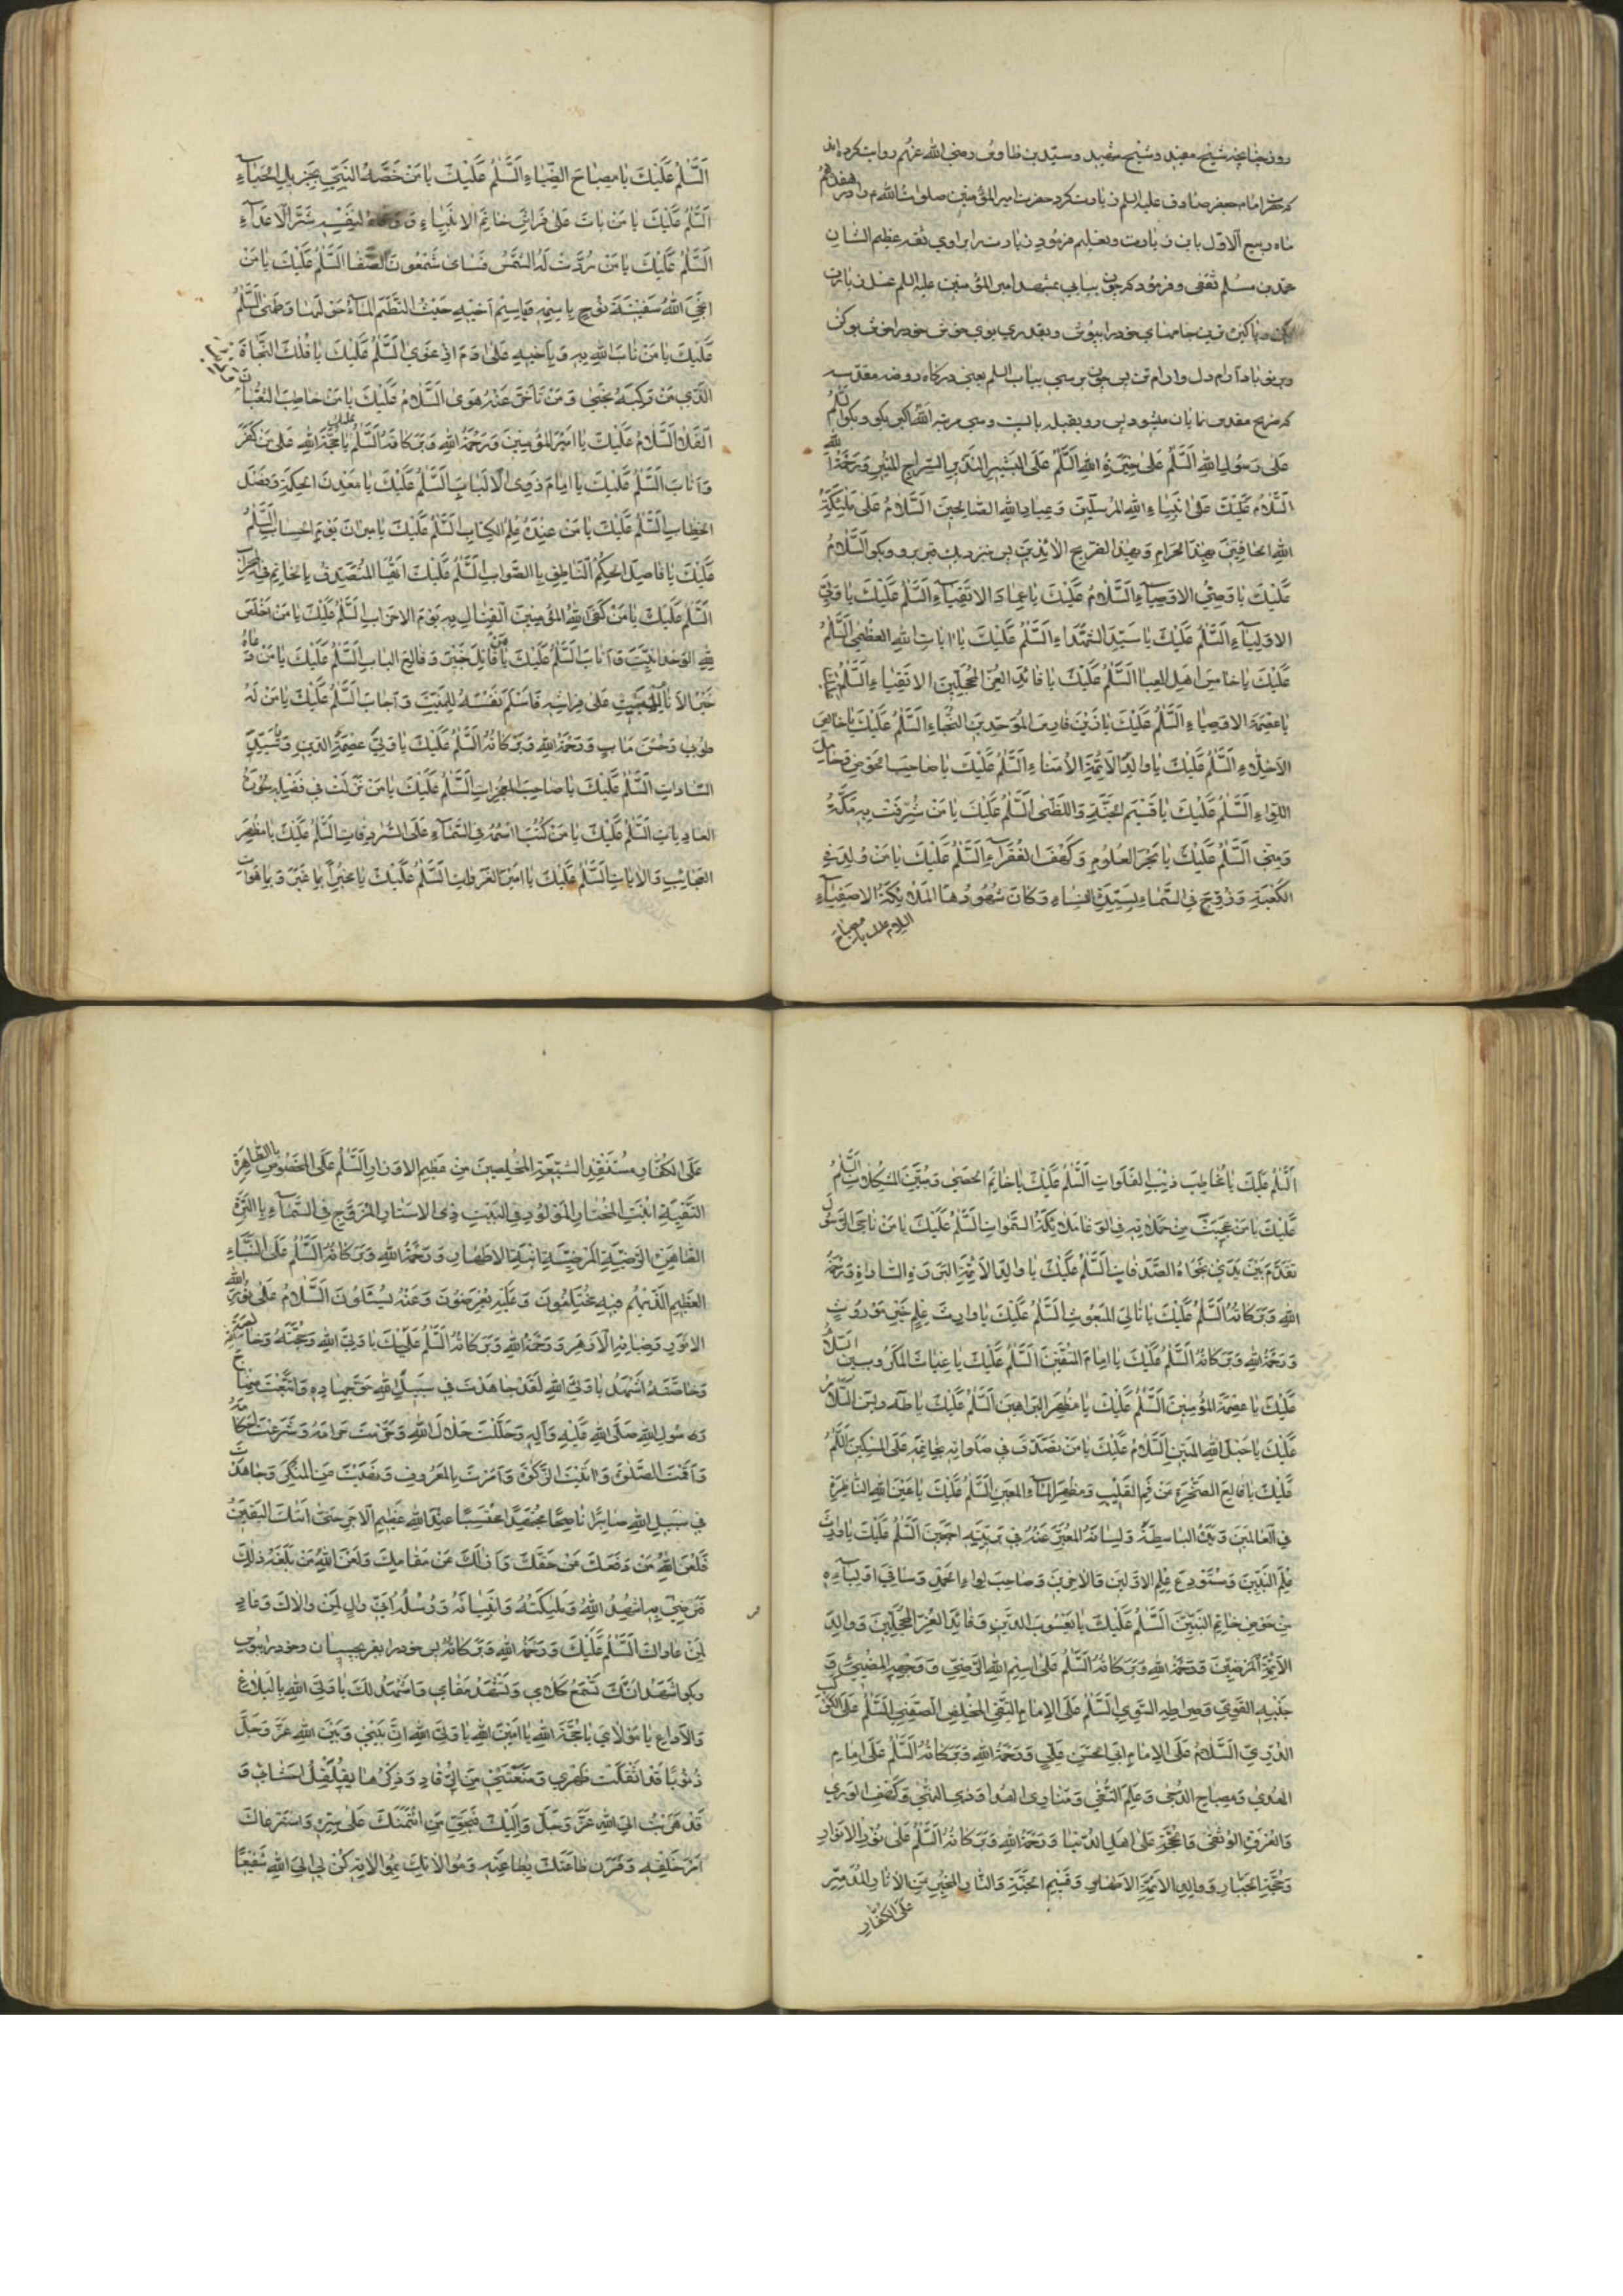 روز چنانچه شیخ مفید و شیخ شهید و سید بن طاوس رضی الله عنهم روایت کرده اند
که حضرت امام جعفر صادق علیه السلم زیارت کرد حضرت امیر المؤمنین صلوات الله را در هفدهم
ماه ربیع الاول باین زیارت و تعلیم فرمود این زیارت را براوی ثقه عظیم الشان
محمد بن مسلم ثقفی و فرمود که چون بیایی بمشهد امیر المؤمنین علیه السلم غسل زیارت
بکن و پاکیزه ترین جامهای خود را بپوش و بقدری بوی خوش خود را خوش بو کن
و برو با آرام دل و آرام تن پس چون برسی بباب السلم یعنی درگاه روضه مقدسه
که ضریح مقدس نمایان میشود پس رو بقبله بایست و سی مرتبه الله اکبر بگو و بگو السلم
على رسول الله السلم على خيرة الله السلم على البشير النذير السراج المنير و رحمة الله
السلام عليك على انبياء الله المرسلين و عباد الله الصالحين السلام على ملئكة
الله الحافين بهذا الحرام و بهذا الضريح اللائذين به پس نزدیک قبر برو و بگو السلام
عليك يا وصي الاوصياء السلام عليك يا عماد الاتقياء السلم عليك يا ولي
الاولياء السلم عليك يا سيد الشهداء السلم عليك يا ايات الله العظمى السلم
عليك يا خامس اهل العبا السلم عليك يا قائد الغر المحجلين الاتقياء السلم
يا عصمة الاوصياء السلم عليك يا زين فارس الموحدين النجباء السلم عليك يا خالص
الاخلاء السلم عليك يا والد الائمة الامناء السلم عليك يا صاحب الحوض و حامل
اللواء السلم عليك يا قسيم الجنة و اللظى السلم عليك يا من شرفت به مكة
و منى السلم عليك يا بحر العلوم و كهف الفقراء السلم عليك يا من ولد في
الكعبة و زوج في السماء بسيدة النساء و كان شهودها الملائكة الاصفياء
السلام عليك يا مصباح
السلم عليك يا مصباح الضياء السلم عليك يا من خصه النبي بجزيل الحباء
السلم عليك يا من بات على فراش خاتم الانبياء و وقاه بنفسه شر الاعداء
السلم عليك يا من ردت له الشمس فسامى شمعون الصفا السلم عليك يا من
انجى الله سفينة نوح باسمه و باسم اخيه حيث التطم الماء حولها و طمى السلم
عليك يا من تاب الله به و باخيه على ادم اذ غوى السلم عليك يا فلك النجاة
الذي من ركبه نجى و من تاخر عنه هوى السلام عليك يا من خاطب الثعبان
الفلا السلام عليك يا امير المؤمنين و رحمة الله و بركاته السلم عليك يا حجة الله على من كفر
و اناب السلم عليك يا امام ذوى الالباب السلم عليك يا معدن الحكمة و فصل
الخطاب السلم عليك يا من عنده علم الكتاب السلم عليك يا ميزان يوم الحساب السلم
عليك يا فاصل الحكم الناطق بالصواب السلم عليك ايها المتصدق بالخاتم في المحراب
السلم عليك يا من كفى الله المؤمنين القتال به يوم الاحزاب السلم عليك يا من اخلص
لله الوحدانية و اناب السلم عليك يا قاتل خيبر و قالع الباب السلم عليك يا من دعاه
خير الانام للمبيت على فراشه فاسلم نفسه للمنية و اجاب السلم عليك يا من له
طوبى و حسن ماب و رحمة الله و بركاته السلم عليك يا ولي عصمة الدين و سيد
السادات السلم عليك يا صاحب المعجزات السلم عليك يا من نزلت في فضله سورة
العاديات السلم عليك يا من كتب اسمه في السماء على السرادقات السلم عليك يا مظهر
العجائب و الايات السلم عليك يا امير الغزوات السلم عليك يا مخبرا بما غبر و بما هو ات
السلم عليك يا مخاطب ذئب الفلوات السلم عليك يا خاتم الحصى و مبين المشكلات السلم
عليك يا من عجبت من حملاته في الوغا ملائكة السموات السلم عليك يا من ناجى الرسول
فقدم بين يدي نجواه الصدقات السلم عليك يا والد الائمة البررة السادات و رحمة
الله و بركاته السلم عليك يا تالي المبعوث السلم عليك يا وارث علم خير موروث
و رحمة الله و بركاته السلم عليك يا امام المتقين السلم عليك يا غياث المكروبين السلام
عليك يا عصمة المؤمنين السلم عليك يا مظهر البراهين السلم عليك يا طه و يس السلام
عليك يا حبل الله المتين السلام عليك يا من تصدق في صلواته بخاتمه على المسكين السلم
عليك يا قالع الصخرة عن فم القليب و مظهر الماء المعين السلم عليك يا عين الله الناظرة
في العالمين و يده الباسطة و لسانه المعبر عنه في بريته اجمعين السلم عليك يا وارث
علم النبيين و مستودع علم الاولين و الاخرين و صاحب لواء الحمد و ساقي اوليائه
من حوض خاتم النبيين السلم عليك يا يعسوب الدين و قائد الغر المحجلين و والد
الائمة المرضيين و رحمة الله و بركاته السلم على اسم الله الرضي و وجهه المضيء و
جنبه القوي و صراطه السوي السلم على الامام التقي المخلص الصفي السلم على الكوكب
الدري السلام على الامام ابي الحسن علي و رحمة الله و بركاته السلم على امام
الهدى و مصباح الدجى و علم التقى و منار الهدى و ذي النهى و كهف الورى
و العروة الوثقى و الحجة على اهل الدنيا و رحمة الله و بركاته السلم على نور الانوار
و حجة الجبار و والد الائمة الاطهار و قسيم الجنة و النار المخبر عن الاثار المدمر
على الكفار
على الكفار مستنقذ الشيعة المخلصين من عظيم الاوزار السلم على المخصوص بالطاهرة
التقية ابنة المختار المولود في البيت ذي الاستار المزوج في السماء بالبرة
الطاهرة الرضية المرضية ابنة الاطهار و رحمة الله و بركاته السلم على النباء
العظيم الذي هم فيه مختلفون و عليه يعرضون و عنه يسئلون السلام على نور الله
الانور و ضيائه الازهر و رحمة الله و بركاته السلم عليك يا ولي الله و حجته و خالصة
و خاصته اشهد يا ولي الله لقد جاهدت في سبيل الله حق جهاده و اتبعت منهاج
رسول الله صلى الله عليه و اله و حللت حلال الله و حرمت حرامه و شرعت احكامه
و اقمت الصلوة و اتيت الزكوة و امرت بالمعروف و نهيت عن المنكر و جاهدت
في سبيل الله صابرا ناصحا مجتهدا محتسبا عند الله عظيم الاجر حتى اتيك اليقين
فلعن الله من دفعك عن حقك و ازالك عن مقامك و لعن الله من بلغه ذلك
فرضي به اشهد الله و ملئكته و انبيائه و رسله اني وال لمن والاك و عاد
لمن عاداك السلم عليك و رحمة الله و بركاته پس خود را بقبر بچسبان و خود را بقبر
و بگو اشهد انك تسمع كلامي و تشهد مقامي و اشهد لك يا ولي الله بالبلاغ
و الاداء يا مولاي يا حجة الله يا امين الله يا ولي الله ان بيني و بين الله عز و جل
ذنوبا قد اثقلت ظهري و منعتني من الرقاد و ذكرها يقلقل احشائي و
قد هربت الى الله عز و جل و اليك فبحق من ائتمنك على سره و استرعاك
امر خلقه و قرن طاعتك بطاعته و موالاتك بموالاته كن لي الى الله شفيعا